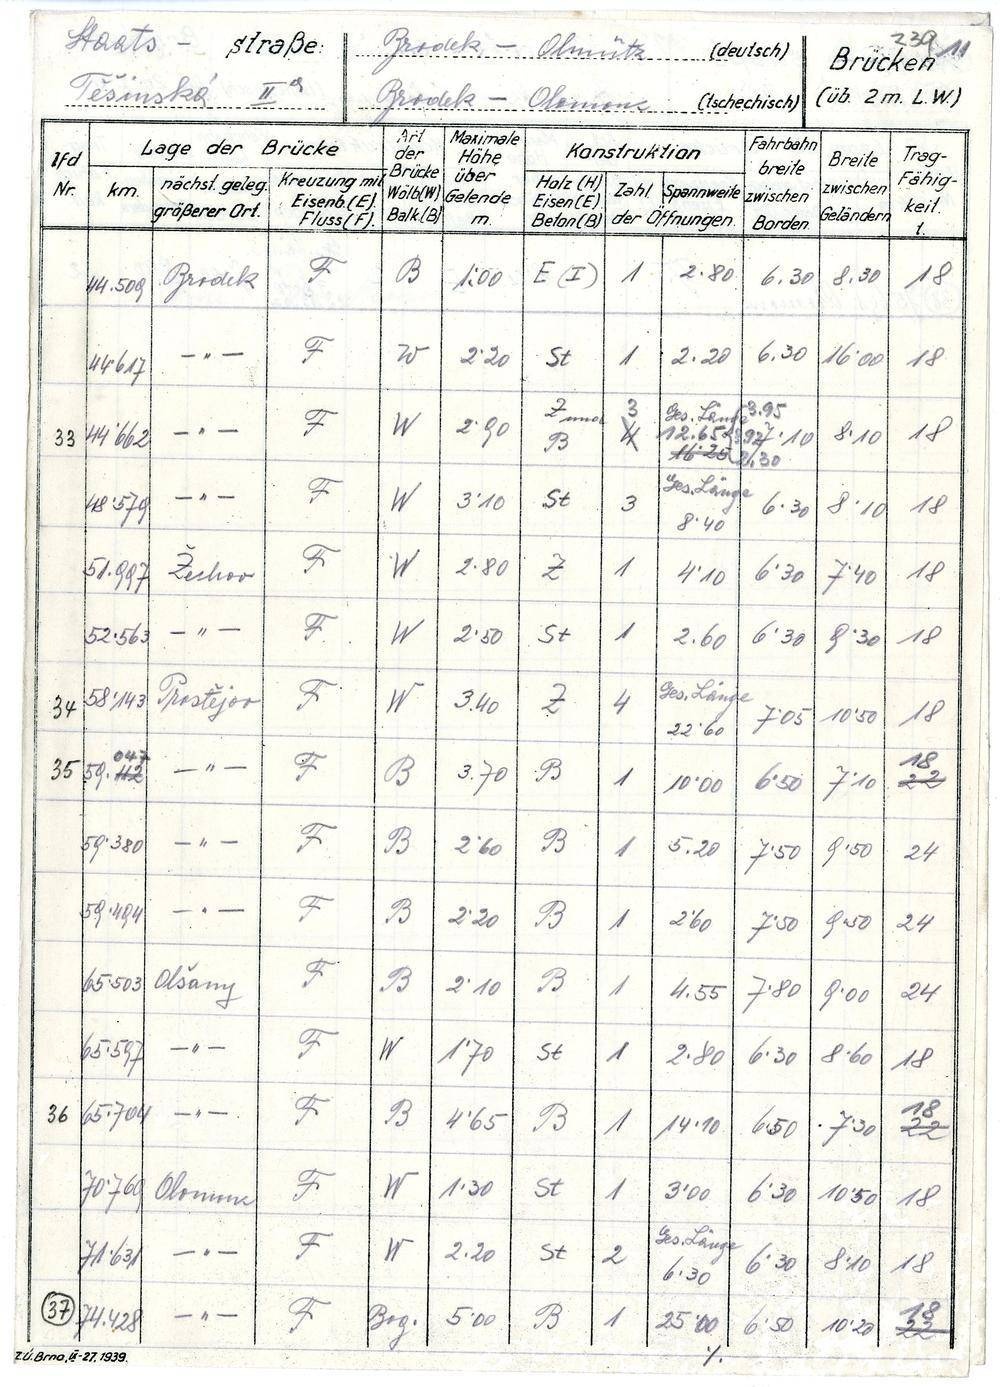 Staats - straße: Brodek - Olmütz (deutsch) Brücken 239 11
Těšinská II a Brodek - Olomouc (tschechisch) (üb. 2 m. L.W.)
lfd Nr. Lage der Brücke Art der Brücke Wolb(W) Balk(B) Maximale Höhe über Gelende m. Konstruktion Fahrbahn breite zwischen Borden. Breite zwischen Geländern Trag- Fähig- keit. t.
km. nächst. geleg. größerer Ort. Kreuzung mit Eisenb.(E). Fluss(F). Holz (H) Eisen(E) Beton(B) Zahl Spannweite der Öffnungen.
44.509 Brodek F B 1.00 E (I) 1 2.80 6.30 8.30 18
44.617 — " — F W 2.20 St 1 2.20 6.30 16.00 18
33 44.662 — " — F W 2.90 Z und B 3 4 Ges. Länge 12.65 16.25 3.95 3.92 7.10 2.30 8.10 18
48.579 — " — F W 3.10 St 3 Ges. Länge 8.40 6.30 8.10 18
51.997 Žeshov F W 2.80 Z 1 4.10 6.30 7.40 18
52.563 — " — F W 2.50 St 1 2.60 6.30 9.30 18
34 58.143 Prostějov F W 3.40 Z 4 Ges. Länge 22.60 7.05 10.50 18
35 59.112 047 — " — F B 3.70 B 1 10.00 6.50 7.10 18 22
59.380 — " — F B 2.60 B 1 5.20 7.50 9.50 24
59.494 — " — F B 2.20 B 1 2.60 7.50 9.50 24
65.503 Olšany F B 2.10 B 1 4.55 7.80 9.00 24
65.597 — " — F W 1.70 St 1 2.80 6.30 8.60 18
36 65.704 — " — F B 4.65 B 1 14.10 6.50 7.30 18 22
70.769 Olomouc F W 1.30 St 1 3.00 6.30 10.50 18
71.631 — " — F W 2.20 St 2 Ges. Länge 6.30 6.30 8.10 18
37 74.428 — " — F Bog. 5.00 B 1 25.00 6.50 10.20 18 22
Z.Ú. Brno, II-27. 1939. ./.